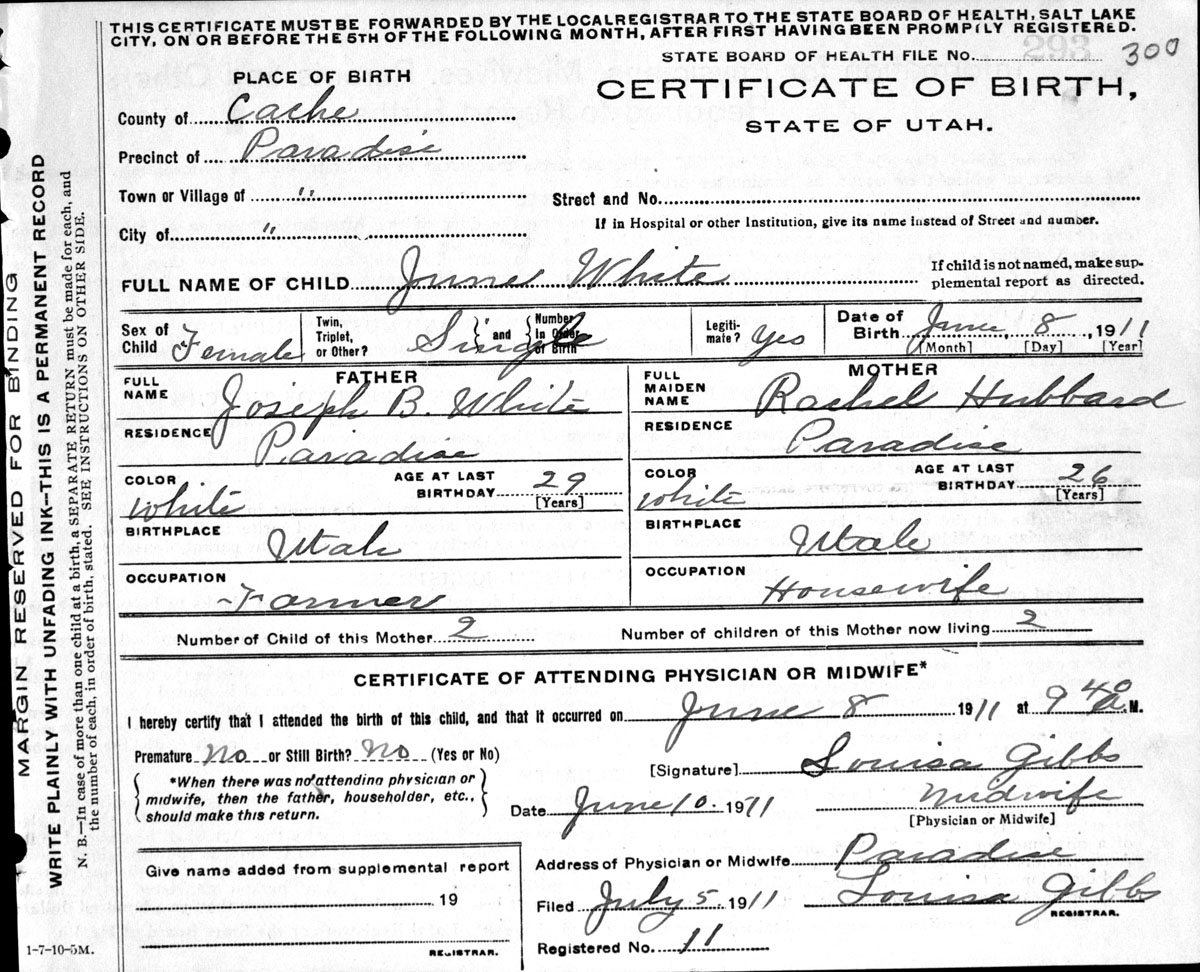 THIS CERTIFICATE MUST BE FORWARDED BY THE LOCAL REGISTRAR TO THE STATE BOARD OF HEALTH, SALT LAKE
CITY, ON OR BEFORE THE 5TH OF THE FOLLOWING MONTH, AFTER FIRST HAVING BEEN PROMPTLY REGISTERED.
STATE BOARD OF HEALTH FILE No. 293 300
PLACE OF BIRTH
CERTIFICATE OF BIRTH,
STATE OF UTAH.
County of Cache
Precinct of Paradise
Town or Village of "
Street and No.
If in Hospital or other Institution, give its name instead of Street and number.
City of "
FULL NAME OF CHILD June White
If child is not named, make sup-
plemental report as directed.
Sex of Child Female
Twin, Triplet, or Other? Single and Number in Order of Birth
Legiti-mate? Yes
Date of Birth June 8, 1911
[Month] [Day] [Year]
FATHER
FULL NAME Joseph B. White
RESIDENCE Paradise
COLOR White
AGE AT LAST BIRTHDAY 29 [Years]
BIRTHPLACE Utah
OCCUPATION Farmer
MOTHER
FULL MAIDEN NAME Rachel Hubbard
RESIDENCE Paradise
COLOR White
AGE AT LAST BIRTHDAY 26 [Years]
BIRTHPLACE Utah
OCCUPATION Housewife
Number of Child of this Mother 2
Number of children of this Mother now living 2
CERTIFICATE OF ATTENDING PHYSICIAN OR MIDWIFE*
I hereby certify that I attended the birth of this child, and that it occurred on June 8 1911 at 9 40 a.M.
Premature No or Still Birth? No (Yes or No)
*When there was no attending physician or
midwife, then the father, householder, etc.,
should make this return.
[Signature] Louisa Gibbs
Date June 10. 1911
Midwife
[Physician or Midwife]
Give name added from supplemental report
19
REGISTRAR.
Address of Physician or Midwife Paradise
Filed July 5, 1911 Louisa Gibbs
REGISTRAR.
Registered No. 11
1-7-10-5M.
MARGIN RESERVED FOR BINDING
WRITE PLAINLY WITH UNFADING INK—THIS IS A PERMANENT RECORD
N. B.—In case of more than one child at a birth, a SEPARATE RETURN must be made for each, and
the number of each, in order of birth, stated. SEE INSTRUCTIONS ON OTHER SIDE.